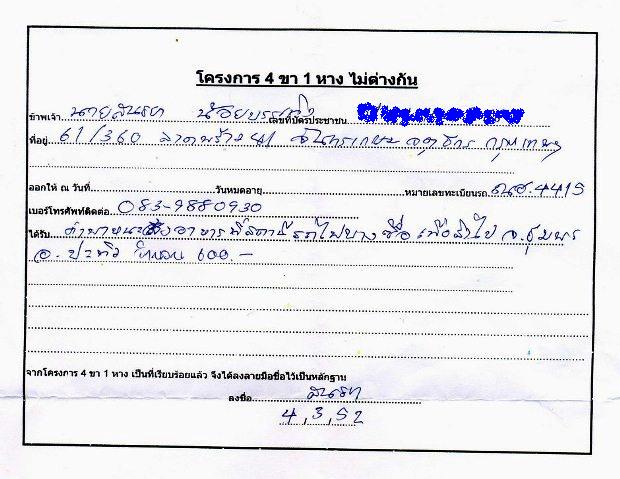 โครงการ 4 ขา 1 หาง ไม่ต่างกัน
ข้าพเจ้า นาย เลขที่บัตรประชาชน
ที่อยู่ 61/360 ลาดพร้าว 41 จันทรเกษม จตุจักร กรุงเทพฯ
ออกให้ ณ วันที่ วันหมดอายุ หมายเลขทะเบียนรถ 4415
เบอร์โทรศัพท์ติดต่อ 083-9880930
ได้รับ ค่าพาหนะ อาหารที่สถานีรถไฟบางซื่อ เพื่อส่งไป จ.ชุมพร
อ. ปะทิว 600.-
จากโครงการ 4 ขา 1 หาง เป็นที่เรียบร้อยแล้ว จึงได้ลงลายมือชื่อไว้เป็นหลักฐาน
ลงชื่อ
4,3,52